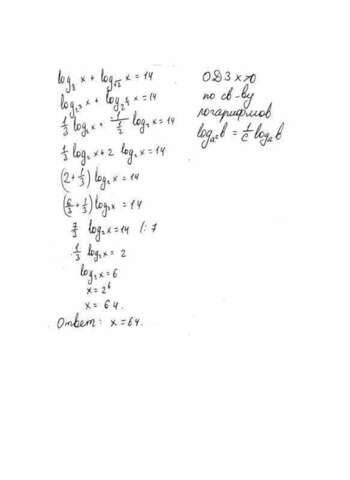 log₈ x + log_√2 x = 14
log_2³ x + log_2^½ x = 14
1/3 log₂ x + 1/(1/2) log₂ x = 14
1/3 log₂ x + 2 log₂ x = 14
(2 + 1/3) log₂ x = 14
(6/3 + 1/3) log₂ x = 14
7/3 log₂ x = 14 /: 7
1/3 log₂ x = 2
log₂ x = 6
x = 2⁶
x = 64.
Ответ: x = 64.
ОДЗ x>0
по св-ву
логарифмов
log_aᶜ b = 1/c log_a b